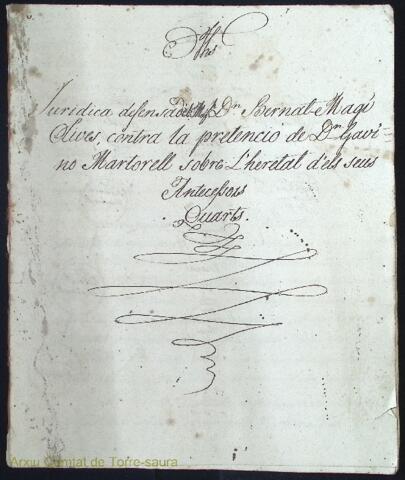 Jhs
Juridica defensa del Mag.ch Dn. Bernat-Magi
Olives, contra la pretencio de Dn. Gavi=
no Martorell sobre L'heretat d'els seus
Antecessors
Quarts.
Arxiu Comtat de Torre-saura